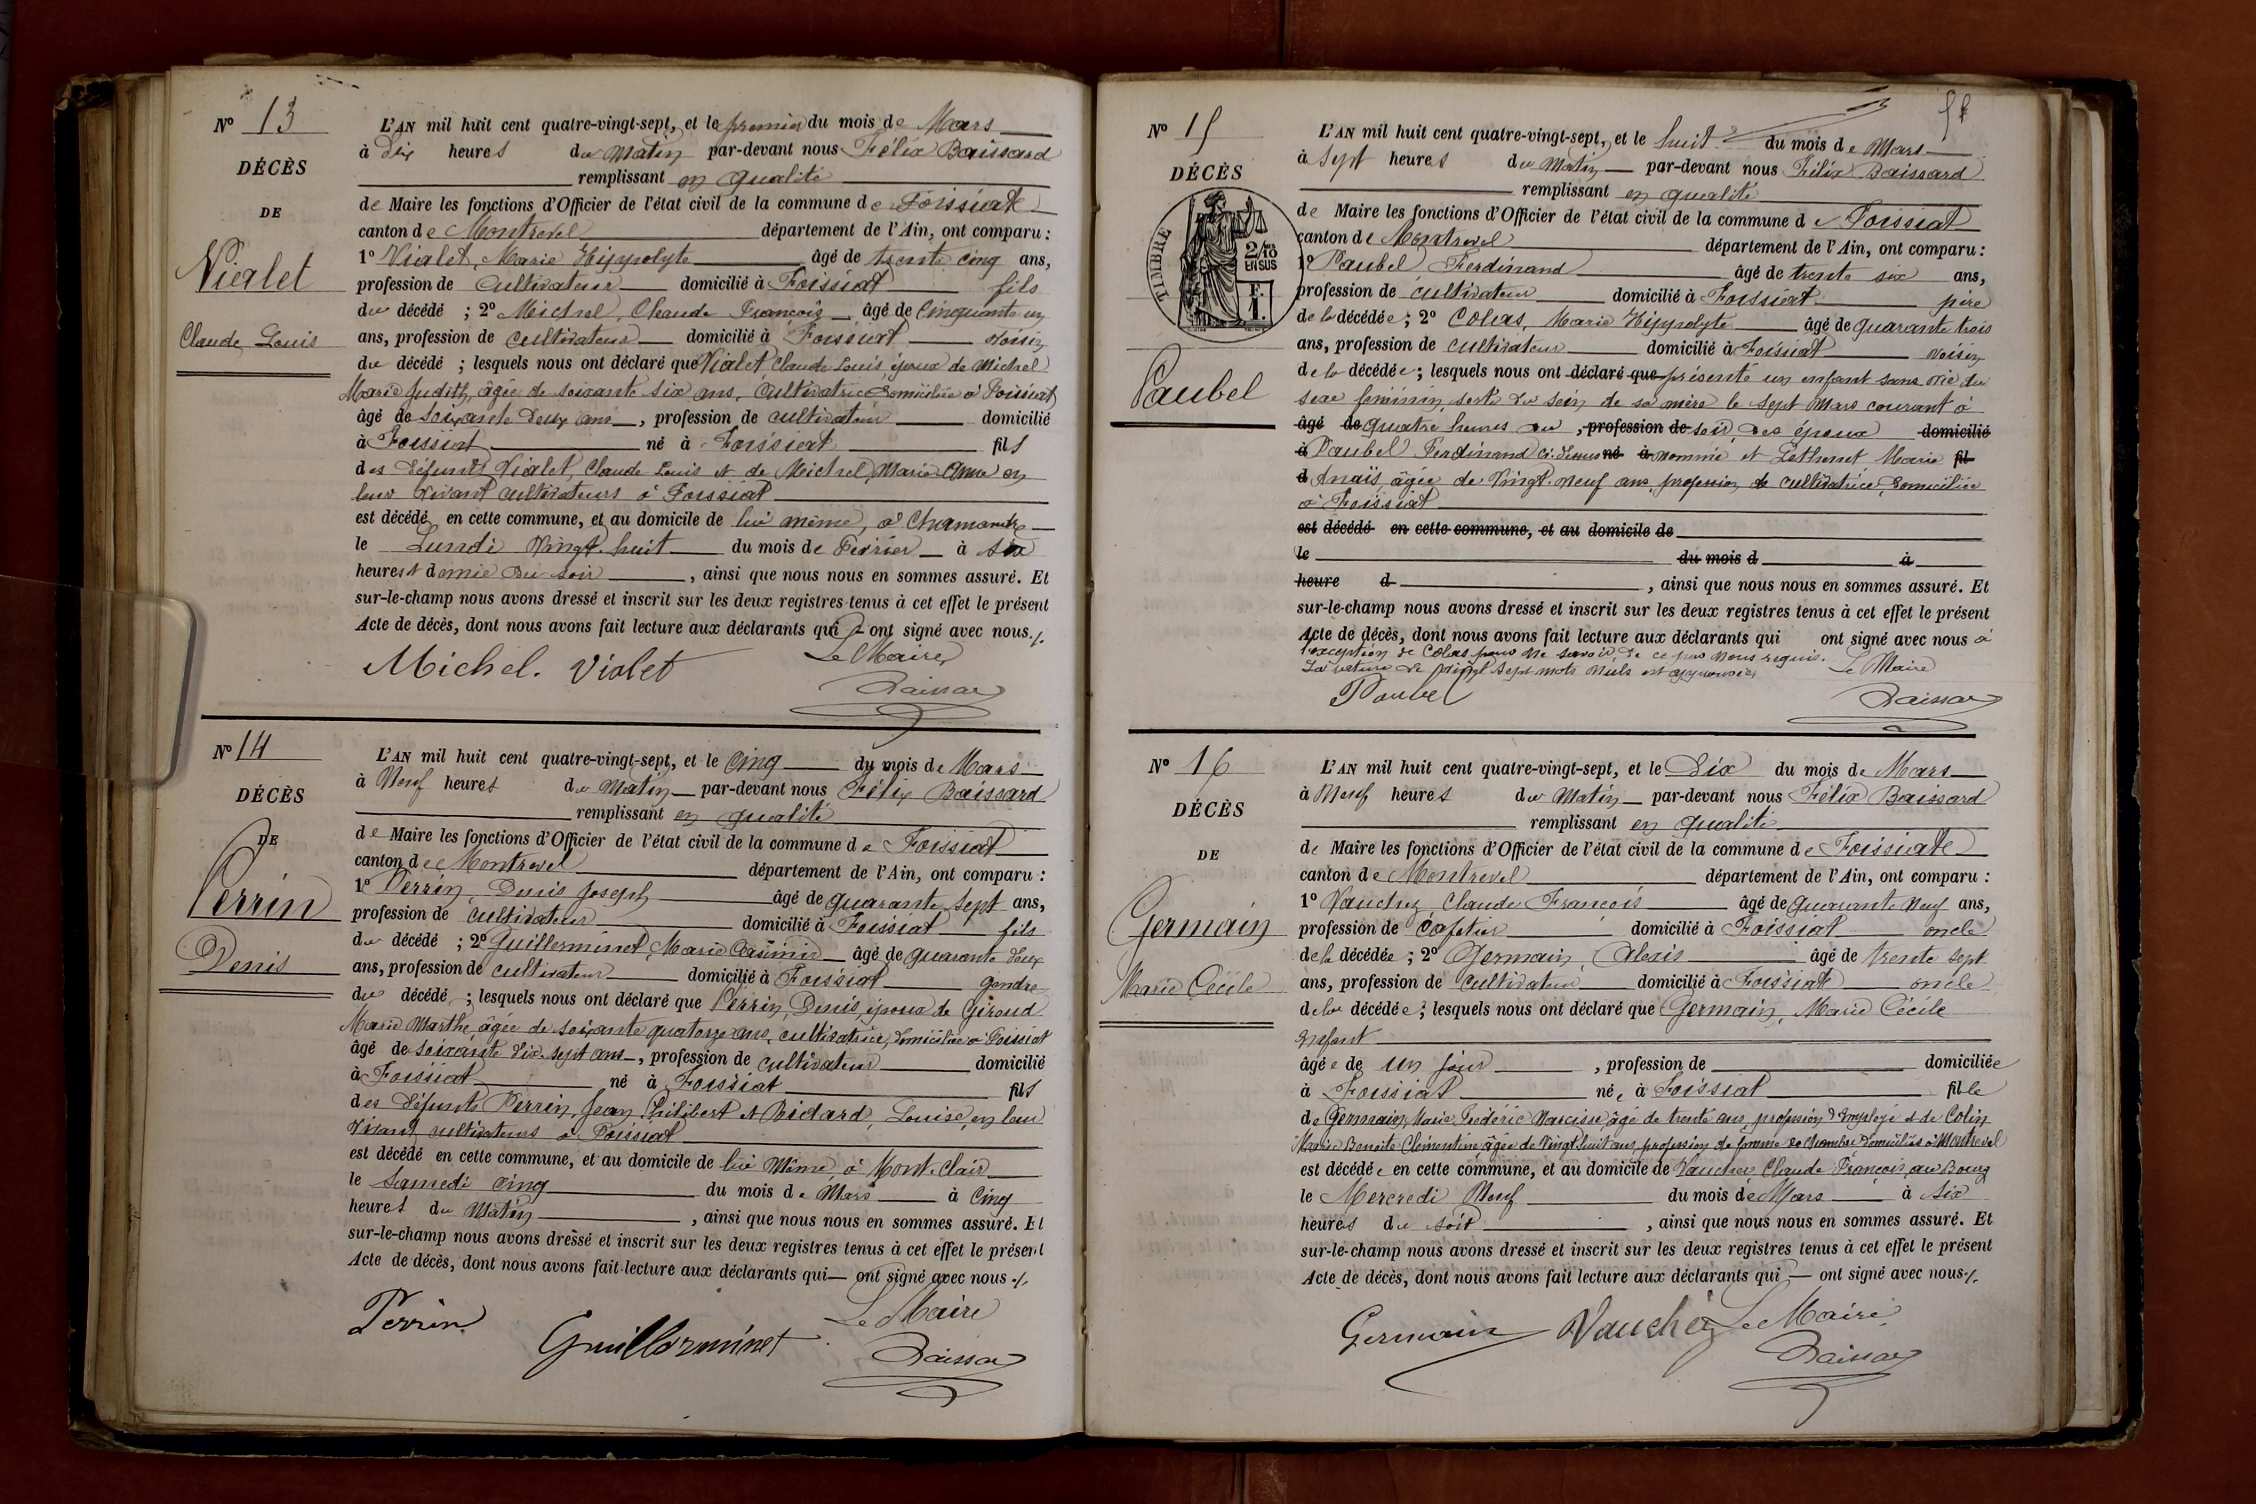 N° 13
DÉCÈS
DE
Vialet
Claude Louis
L'AN mil huit cent quatre-vingt-sept, et le premier du mois de Mars
à dix heures du Matin par-devant nous Félix Baissard
remplissant en qualité
de Maire les fonctions d'Officier de l'état civil de la commune de Foissiat
canton de Montrevel département de l'Ain, ont comparu :
1° Vialet, Marie Hippolyte âgé de trente cinq ans,
profession de Cultivateur domicilié à Foissiat fils
du décédé ; 2° Michel, Claude François âgé de Cinquante un
ans, profession de Cultivateur domicilié à Foissiat voisin
du décédé ; lesquels nous ont déclaré que Vialet, Claude Louis, époux de Michel
Marie Judith, âgée de soixante six ans, Cultivatrice domiciliée à Foissiat
âgé de soixante deux ans, profession de cultivateur domicilié
à Foissiat né à Foissiat fils
des défunts Vialet, Claude Louis et de Michel, Marie Anne en
leur vivant cultivateurs à Foissiat
est décédé en cette commune, et au domicile de lui même, à Chamandre
le Lundi vingt-huit du mois de Février à six
heures et demie du soir, ainsi que nous nous en sommes assuré. Et
sur-le-champ nous avons dressé et inscrit sur les deux registres tenus à cet effet le présent
Acte de décès, dont nous avons fait lecture aux déclarants qui ont signé avec nous./.
Michel. Vialet
Le Maire
Baissard
N° 14
DÉCÈS
DE
Perrin
Denis
L'AN mil huit cent quatre-vingt-sept, et le Cinq du mois de Mars
à Neuf heures du Matin par-devant nous Félix Baissard
remplissant en qualité
de Maire les fonctions d'Officier de l'état civil de la commune de Foissiat
canton de Montrevel département de l'Ain, ont comparu :
1° Perrin, Denis Joseph âgé de quarante sept ans,
profession de cultivateur domicilié à Foissiat fils
du décédé ; 2° Guillerminet, Marie Casimir âgé de quarante deux
ans, profession de cultivateur domicilié à Foissiat gendre
du décédé ; lesquels nous ont déclaré que Perrin, Denis, époux de Giroud
Marie Marthe, âgée de soixante quatorze ans, cultivatrice, domiciliée à Foissiat
âgé de soixante dix-sept ans, profession de cultivateur domicilié
à Foissiat né à Foissiat fils
des défunts Perrin, Jean Philibert et Bidard, Louise, en leur
vivant cultivateurs à Foissiat
est décédé en cette commune, et au domicile de lui même, à Mont-Clair
le Samedi cinq du mois de Mars à Cinq
heures du Matin, ainsi que nous nous en sommes assuré. Et
sur-le-champ nous avons dressé et inscrit sur les deux registres tenus à cet effet le présent
Acte de décès, dont nous avons fait lecture aux déclarants qui ont signé avec nous./.
Perrin
Guillerminet
Le Maire
Baissard
N° 15
DÉCÈS
TIMBRE
2/10
EN SUS
F.
1.
Paubel
L'AN mil huit cent quatre-vingt-sept, et le huit du mois de Mars
à sept heures du Matin par-devant nous Félix Baissard
remplissant en qualité
de Maire les fonctions d'Officier de l'état civil de la commune de Foissiat
canton de Montrevel département de l'Ain, ont comparu :
1° Paubel Ferdinand âgé de trente six ans,
profession de cultivateur domicilié à Foissiat père
de la décédée ; 2° Colas, Marie Hippolyte âgé de quarante trois
ans, profession de cultivateur domicilié à Foissiat voisin
de la décédée ; lesquels nous ont déclaré que présenté un enfant sans vie du
sexe féminin, sorti du sein de sa mère le sept Mars courant à
âgé de quatre heures du, profession de soir, des époux domicilié
à Paubel Ferdinand ci-dessus né à nommé et Marie fil
d Anaïs, âgée de vingt-neuf ans, profession de cultivatrice, domiciliée
à Foissiat
est décédé en cette commune, et au domicile de
le du mois d à
heure d, ainsi que nous nous en sommes assuré. Et
sur-le-champ nous avons dressé et inscrit sur les deux registres tenus à cet effet le présent
Acte de décès, dont nous avons fait lecture aux déclarants qui ont signé avec nous à
l'exception de Colas pour ne savoir, de ce par nous requis.
La rature de vingt sept mots nuls est approuvée
Le Maire
Paubel
Baissard
N° 16
DÉCÈS
DE
Germain
Marie Cécile
L'AN mil huit cent quatre-vingt-sept, et le Dix du mois de Mars
à Neuf heures du Matin par-devant nous Félix Baissard
remplissant en qualité
de Maire les fonctions d'Officier de l'état civil de la commune de Foissiat
canton de Montrevel département de l'Ain, ont comparu :
1° Vauchez, Claude François âgé de quarante neuf ans,
profession de Cafetier domicilié à Foissiat oncle
de la décédée ; 2° Germain, Alexis âgé de trente sept
ans, profession de Cultivateur domicilié à Foissiat oncle
de la décédée ; lesquels nous ont déclaré que Germain, Marie Cécile
enfant
âgée de un jour, profession de domiciliée
à Foissiat née à Foissiat fille
de Germain, Marie Frédéric Narcisse, âgé de trente ans, profession d'Employé et de Colin
Marie Benoite Clémentine, âgée de vingt huit ans, profession de femme de chambre domiciliés à Montrevel
est décédée en cette commune, et au domicile de Vauchez Claude François, au Bourg
le Mercredi Neuf du mois de Mars à six
heures du soir, ainsi que nous nous en sommes assuré. Et
sur-le-champ nous avons dressé et inscrit sur les deux registres tenus à cet effet le présent
Acte de décès, dont nous avons fait lecture aux déclarants qui ont signé avec nous./.
Germain
Vauchez
Le Maire
Baissard